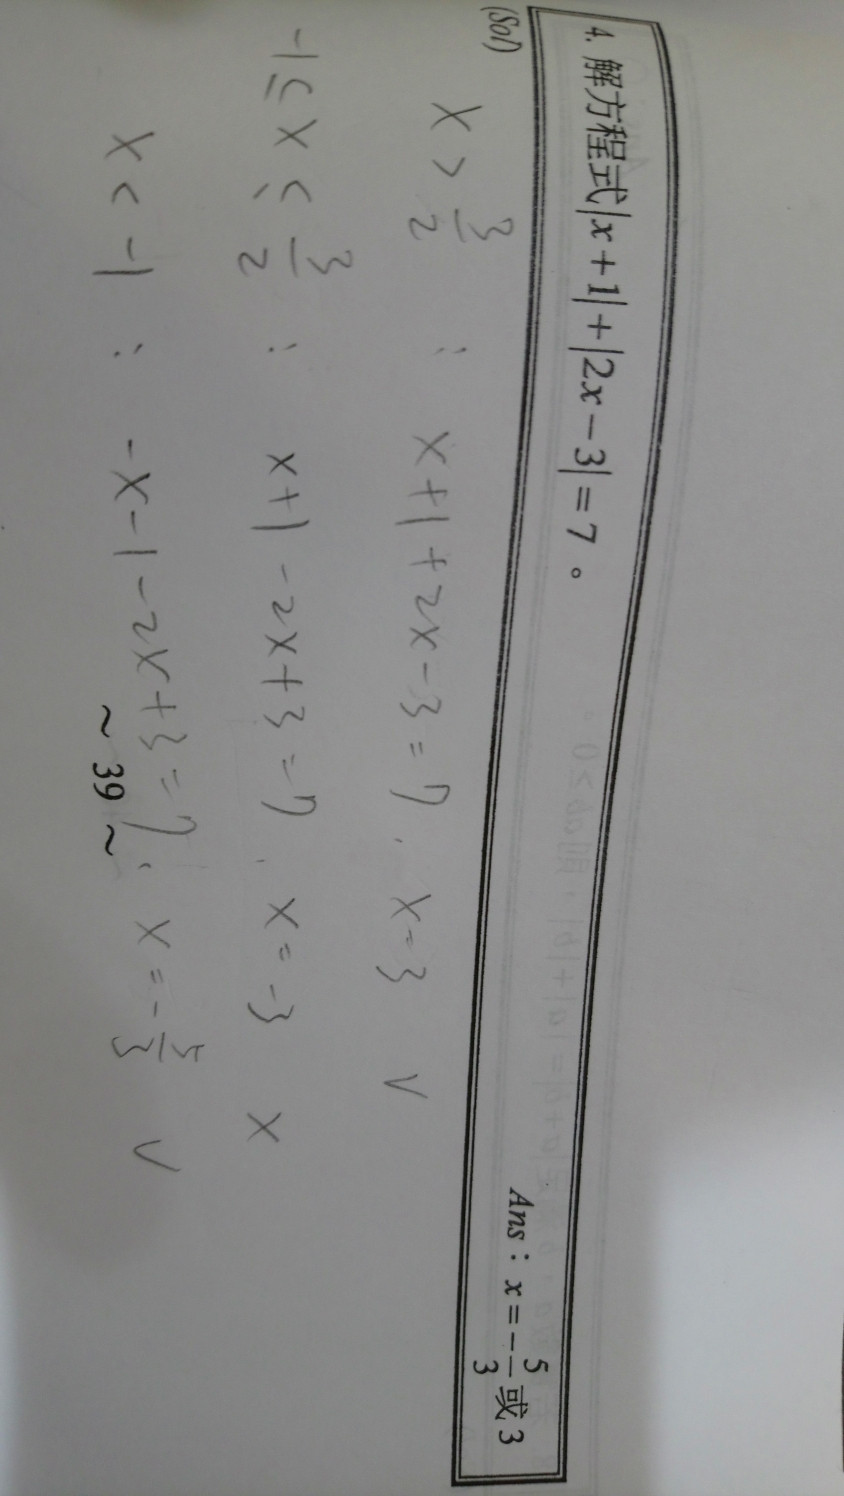 4. 解方程式|x+1|+|2x-3|=7。
Ans：x=-5/3或3
(Sol)
x > 3/2 : x+1+2x-3=7, x=3 ∨
-1≤x≤3/2 : x+1-2x+3=7, x=-3 ×
x < -1 : -x-1-2x+3=7, x=-5/3 ∨
~ 39 ~